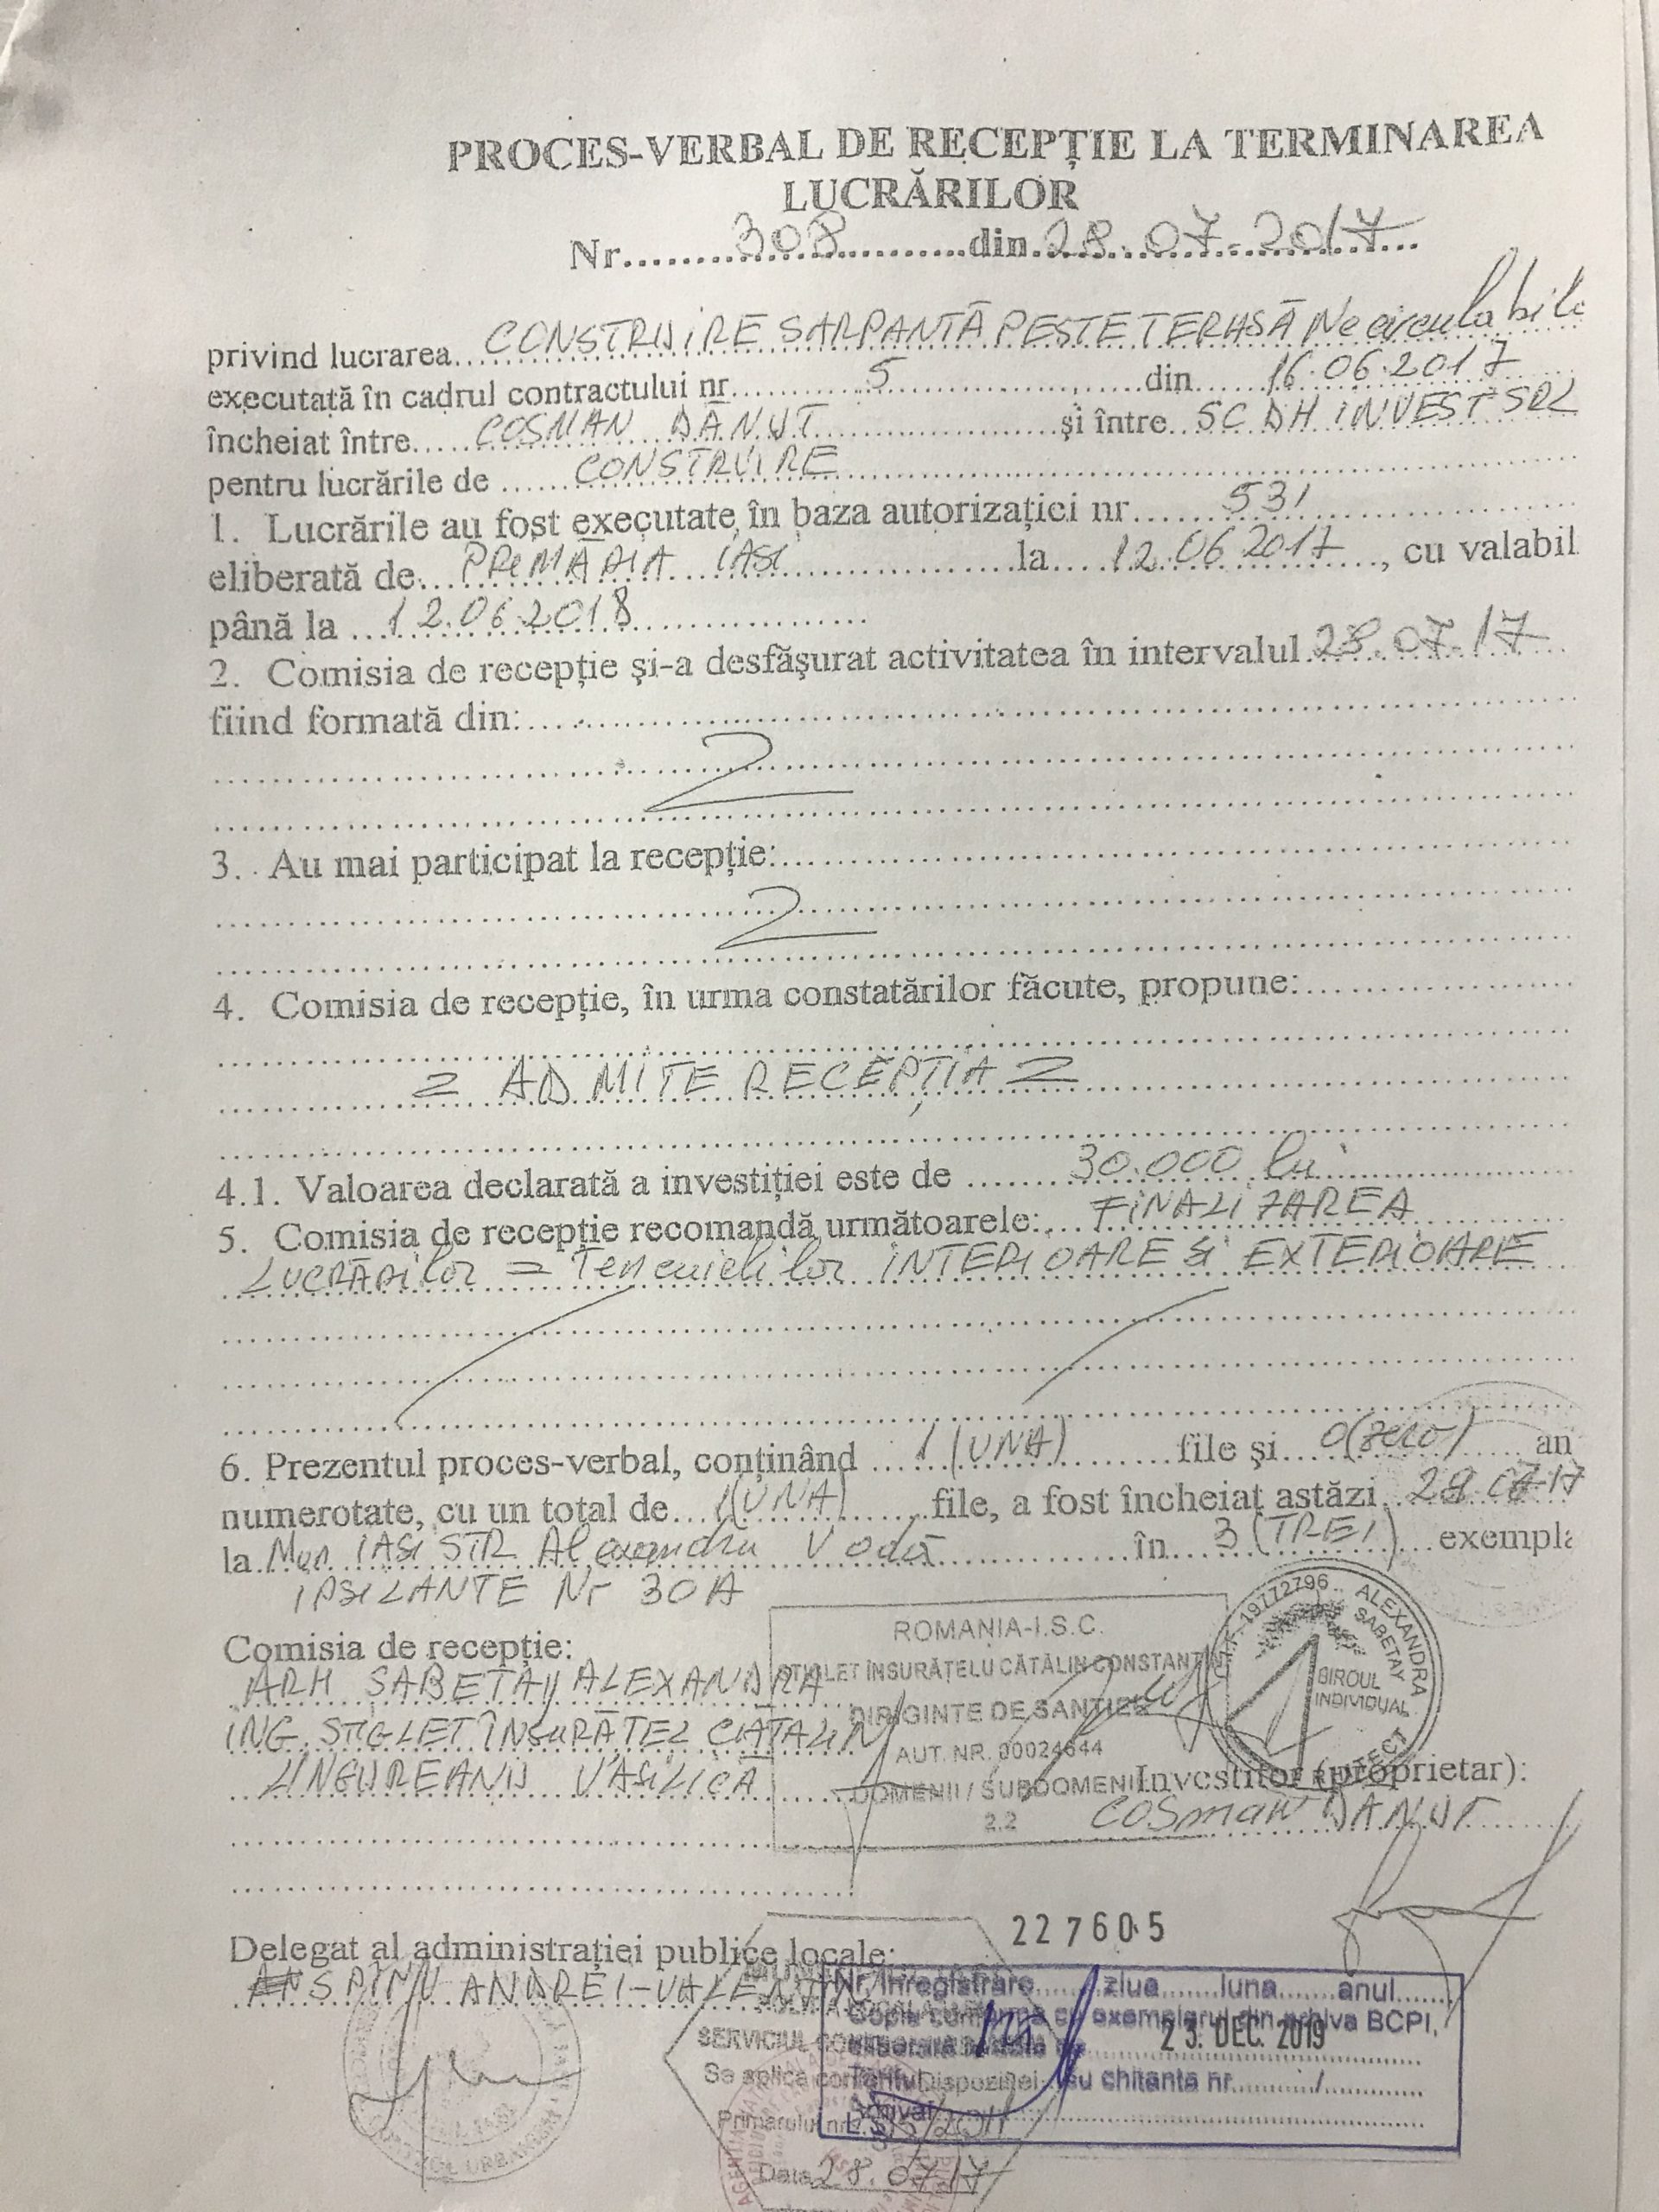 PROCES-VERBAL DE RECEPȚIE LA TERMINAREA
LUCRĂRILOR
Nr.........308............din.28.07.2017...
privind lucrarea...CONSTRUIRE SARPANTĂ PESTE TERASĂ Necirculabilă
executată în cadrul contractului nr..........5....................din......16.06.2017
încheiat între.....COSMAN DĂNUT....................și între..SC DH INVEST SRL
pentru lucrările de ......CONSTRUIRE..............................
1. Lucrările au fost executate în baza autorizației nr.......531....................
eliberată de...PRIMĂRIA IASI....................la....12.06.2017..., cu valabil
până la ...12.06.2018....................
2. Comisia de recepție și-a desfășurat activitatea în intervalul.28.07.17
fiind formată din:..............................
3. Au mai participat la recepție:..............................
4. Comisia de recepție, în urma constatărilor făcute, propune:....................
= ADMITE RECEPȚIA =
4.1. Valoarea declarată a investiției este de .......30.000 lei..............
5. Comisia de recepție recomandă următoarele:....FINALIZAREA
LUCRĂRilor = Tencuielilor INTERIOARE SI EXTERIOARE
6. Prezentul proces-verbal, conținând ....1(UNA)..........file și....0(zero)..... an
numerotate, cu un total de...1(UNA)........file, a fost încheiat astăzi..28.07.17
la.Mun. IASI STR Alexandru Vodă.............în...3(TREI)...exempla
IPSILANTE Nr 30A
ROMANIA-I.S.C.
STIGLET ÎNSURĂȚELU CĂTĂLIN CONSTANTIN
DIRIGINTE DE SANTIER
AUT. NR. 00024644
DOMENII / SUBDOMENII
2.2
19772796
ALEXANDRA
SABETAY
BIROUL
INDIVIDUAL
Comisia de recepție:
ARH SABETAY ALEXANDRA
ING. STIGLET ÎNSURĂTEL CĂTALIN
UNGUREANU VASILICĂ
Investitor (proprietar):
COSMAN DANUT
227605
Delegat al administrației publice locale:
SPINU ANDREI-VALENTIN
Nr. înregistrare.......ziua.......luna.......anul.......
Copie conforma cu exemplarul din arhiva BCPI,
23. DEC. 2019
Tariful
sau chitanta nr........../..........
Arhivar
L.S.
SERVICIUL
Se aplică conform Dispoziției
Primarului nr.
Data 28.07.17